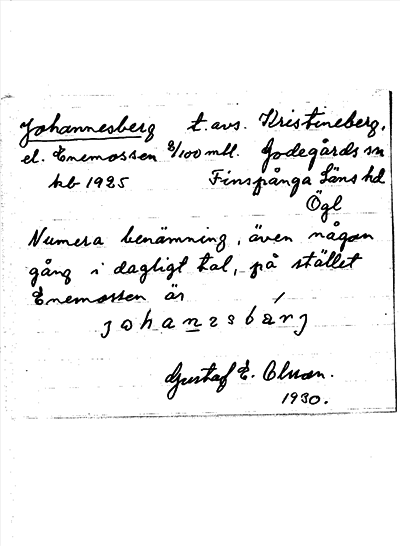 Johannesberg t. avs. Kristineberg,
el. Enemossen 8/100 mtl. Godegårds sn
hb 1925 Finspånga Läns hd
Ögl
Numera benämning, även någon
gång i dagligt tal, på stället
Enemossen är
johanesbärj
Gustaf E. Olsson.
1930.